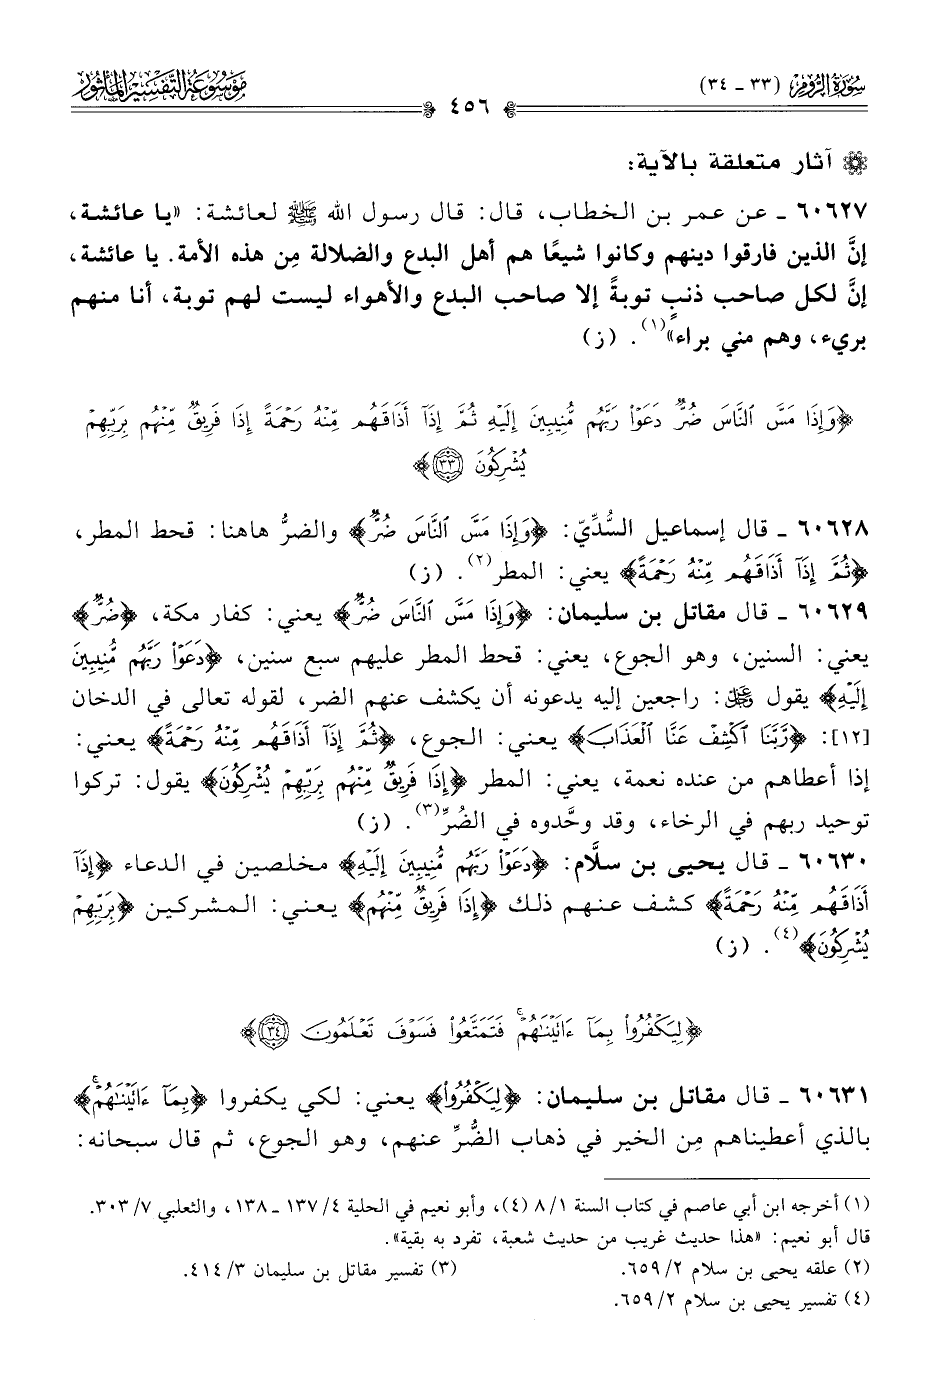 سورة الروم (٣٣ - ٣٤)
٤٥٦
موسوعة التفسير المأثور
آثار متعلقة بالآية:
٦٠٦٢٧ - عن عمر بن الخطاب، قال: قال رسول الله ﷺ لعائشة: «يا عائشة،
إنَّ الذين فارقوا دينهم وكانوا شيعًا هم أهل البدع والضلالة مِن هذه الأمة. يا عائشة،
إنَّ لكل صاحب ذنبٍ توبةً إلا صاحب البدع والأهواء ليست لهم توبة، أنا منهم
بريء، وهم مني براء»(١). (ز)
﴿وَإِذَا مَسَّ ٱلنَّاسَ ضُرٌّ دَعَوْا۟ رَبَّهُم مُّنِيبِينَ إِلَيْهِ ثُمَّ إِذَآ أَذَاقَهُم مِّنْهُ رَحْمَةً إِذَا فَرِيقٌ مِّنْهُم بِرَبِّهِمْ
يُشْرِكُونَ ٣٣﴾
٦٠٦٢٨ - قال إسماعيل السُّدِّيّ: ﴿وَإِذَا مَسَّ ٱلنَّاسَ ضُرٌّ﴾ والضرُّ هاهنا: قحط المطر،
﴿ثُمَّ إِذَآ أَذَاقَهُم مِّنْهُ رَحْمَةً﴾ يعني: المطر(٢). (ز)
٦٠٦٢٩ - قال مقاتل بن سليمان: ﴿وَإِذَا مَسَّ ٱلنَّاسَ ضُرٌّ﴾ يعني: كفار مكة، ﴿ضُرٌّ﴾
يعني: السنين، وهو الجوع، يعني: قحط المطر عليهم سبع سنين، ﴿دَعَوْا۟ رَبَّهُم مُّنِيبِينَ
إِلَيْهِ﴾ يقول ﷿: راجعين إليه يدعونه أن يكشف عنهم الضر، لقوله تعالى في الدخان
[١٢]: ﴿رَّبَّنَا ٱكْشِفْ عَنَّا ٱلْعَذَابَ﴾ يعني: الجوع، ﴿ثُمَّ إِذَآ أَذَاقَهُم مِّنْهُ رَحْمَةً﴾ يعني:
إذا أعطاهم من عنده نعمة، يعني: المطر ﴿إِذَا فَرِيقٌ مِّنْهُم بِرَبِّهِمْ يُشْرِكُونَ﴾ يقول: تركوا
توحيد ربهم في الرخاء، وقد وحَّدوه في الضُرِّ(٣). (ز)
٦٠٦٣٠ - قال يحيى بن سلَّام: ﴿دَعَوْا۟ رَبَّهُم مُّنِيبِينَ إِلَيْهِ﴾ مخلصين في الدعاء ﴿إِذَآ
أَذَاقَهُم مِّنْهُ رَحْمَةً﴾ كشف عنهم ذلك ﴿إِذَا فَرِيقٌ مِّنْهُم﴾ يعني: المشركين ﴿بِرَبِّهِمْ
يُشْرِكُونَ﴾(٤). (ز)
﴿لِيَكْفُرُوا۟ بِمَآ ءَاتَيْنَٰهُمْ ۚ فَتَمَتَّعُوا۟ فَسَوْفَ تَعْلَمُونَ ٣٤﴾
٦٠٦٣١ - قال مقاتل بن سليمان: ﴿لِيَكْفُرُوا۟﴾ يعني: لكي يكفروا ﴿بِمَآ ءَاتَيْنَٰهُمْ ۚ﴾
بالذي أعطيناهم مِن الخير في ذهاب الضُّرِّ عنهم، وهو الجوع، ثم قال سبحانه:
(١) أخرجه ابن أبي عاصم في كتاب السنة ٨/١ (٤)، وأبو نعيم في الحلية ٤/ ١٣٧ - ١٣٨، والثعلبي ٧/ ٣٠٣.
قال أبو نعيم: «هذا حديث غريب من حديث شعبة، تفرد به بقية».
(٢) علقه يحيى بن سلام ٢/ ٦٥٩. (٣) تفسير مقاتل بن سليمان ٣/ ٤١٤.
(٤) تفسير يحيى بن سلام ٢/ ٦٥٩.